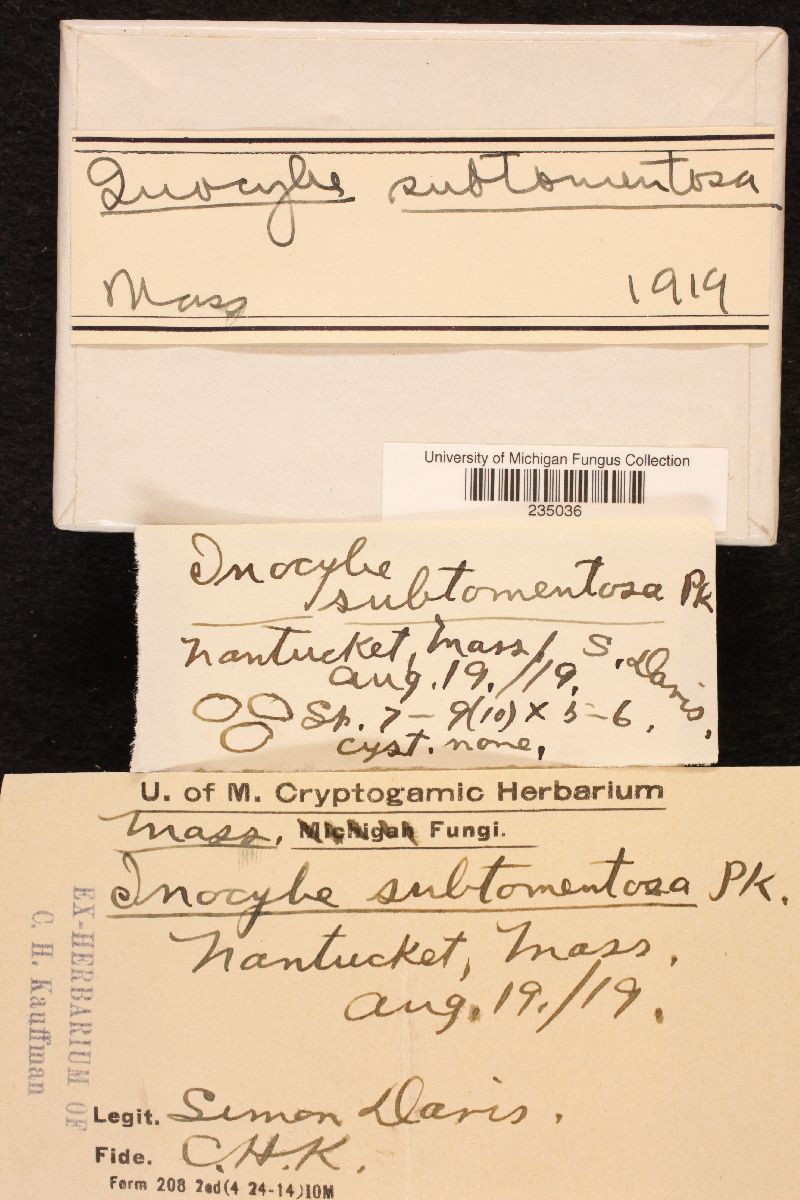 Inocybe subtomentosa
Mass 1919
University of Michigan Fungus Collection
235036
Inocybe
subtomentosa Pk
Nantucket, Mass/ S. Davis.
Aug. 19./19.
Sp. 7-9(10) x 5-6.
cyst. none.
U. of M. Cryptogamic Herbarium
Mass. Michigan Fungi.
Inocybe subtomentosa Pk.
Nantucket, Mass.
Aug. 19./19.
EX-HERBARIUM OF
C. H. Kauffman
Legit. Simon Davis.
Fide. C.H.K.
Form 208 2ed(4 24-14)10M